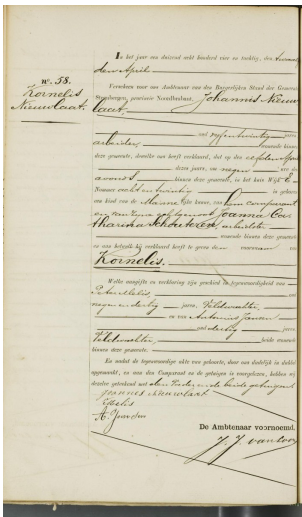 No. 58.
Kornelis
Nieuwlaat.
In het jaar een duizend acht honderd vier en tachtig, den
den April
Verscheen voor ons Ambtenaar van den Burgerlijken Stand der Gemeente
Steenbergen, provincie Noordbrabant, Johannis Nieuw
laat,
oud vijfentwintig jaren,
arbeider, wonende binnen
deze gemeente, dewelke ons heeft verklaard, dat op den elfden April
dezes jaars, ten negen ure des
avonds, binnen deze gemeente, in het huis Wijk E
Nommer acht en twintig is geboren
een kind van de Mannelijke kunne, van hem comparant
en van zijne echtgenoot Joanna Ca
tharina Schouteren, arbeidster
wonende binnen deze gemeente
en aan hetwelk hij verklaard heeft te geven den voornaam van
Kornelis.
Welke aangifte en verklaring zijn geschied in tegenwoordigheid van
oud
negen en dertig jaren, Veldwachter,
en van Antonius Jansen
oud dertig jaren
Veldwachter, beide wonende
binnen deze gemeente.
En nadat de tegenwoordige akte van geboorte, daar van dadelijk in dubbel
opgemaakt, en aan den Comparant en de getuigen is voorgelezen, hebben wij
dezelve geteekend met den Vader en de beide getuigen
Joannes Nieuwlaat
A. Jansen
De Ambtenaar voornoemd,
J. J. van Loon